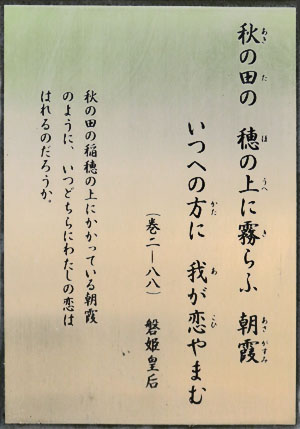 秋の田の　穂の上に霧らふ　朝霞
いつへの方に　我が恋やまむ
（巻二―八八）　磐姫皇后
秋の田の稲穂の上にかかっている朝霞
のように、いつどちらにわたしの恋は
はれるのだろうか。